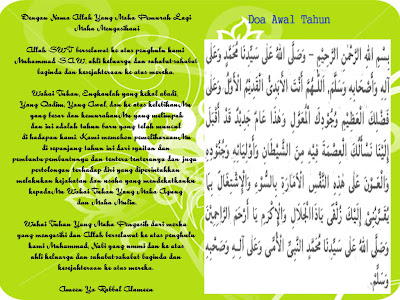 Dengan Nama Allah Yang Maha Pemurah Lagi
Maha Mengasihani
Allah SWT berselawat ke atas penghulu kami
Muhammad S.A.W, ahli keluarga dan sahabat-sahabat
baginda dan kesejahteraan ke atas mereka.
Wahai Tuhan, Engkaulah yang kekal abadi,
Yang Qadim, Yang Awal, dan ke atas kelebihanMu
yang besar dan kemurahanMu yang melimpah
dan ini adalah tahun baru yang telah muncul
di hadapan kami. Kami memohon pemeliharaanMu
di sepanjang tahun ini dari syaitan dan
pembantu-pembantunya dan tentera-tenteranya dan juga
pertolongan terhadap diri yang diperintahkan
melakukan kejahatan dan usaha yang mendekatkanku
kepadaMu Wahai Tuhan Yang Maha Agung
dan Maha Mulia.
Wahai Tuhan Yang Maha Pengasih dari mereka
yang mengasihi dan Allah berselawat ke atas penghulu
kami Muhammad, Nabi yang ummi dan ke atas
ahli keluarga dan sahabat-sahabat baginda dan
kesejahteraan ke atas mereka.
Ameen Ya Rabbal Alameen
Doa Awal Tahun
بِسْمِ اللهِ الرَّحْمٰنِ الرَّحِيْمِ – وَصَلَّى اللهُ عَلَى سَيِّدِنَا مُحَمَّدٍ وَعَلَى
آلِهِ وَأَصْحَابِهِ وَسَلَّمَ. اَللّٰهُمَّ أَنْتَ الْأَبَدِيُّ الْقَدِيْمُ الْأَوَّلُ وَعَلَى
فَضْلِكَ الْعَظِيْمِ وَجُوْدِكَ الْمُعَوَّلُ وَهٰذَا عَامٌ جَدِيْدٌ قَدْ أَقْبَلَ
إِلَيْنَا نَسْأَلُكَ الْعِصْمَةَ فِيْهِ مِنَ الشَّيْطَانِ وَأَوْلِيَائِهِ وَجُنُوْدِهِ
وَالْعَوْنَ عَلَى هٰذِهِ النَّفْسِ الْأَمَّارَةِ بِالسُّوْءِ وَالْاِشْتِغَالَ بِمَا
يُقَرِّبُنِيْ إِلَيْكَ زُلْفَى يَاذَا الْجَلَالِ وَالْإِكْرَامِ يَا أَرْحَمَ الرَّاحِمِيْنَ
وَصَلَّى اللهُ عَلَى سَيِّدِنَا مُحَمَّدٍ النَّبِيِّ الْأُمِّيِّ وَعَلَى آلِهِ وَصَحْبِهِ
وَسَلَّمَ.